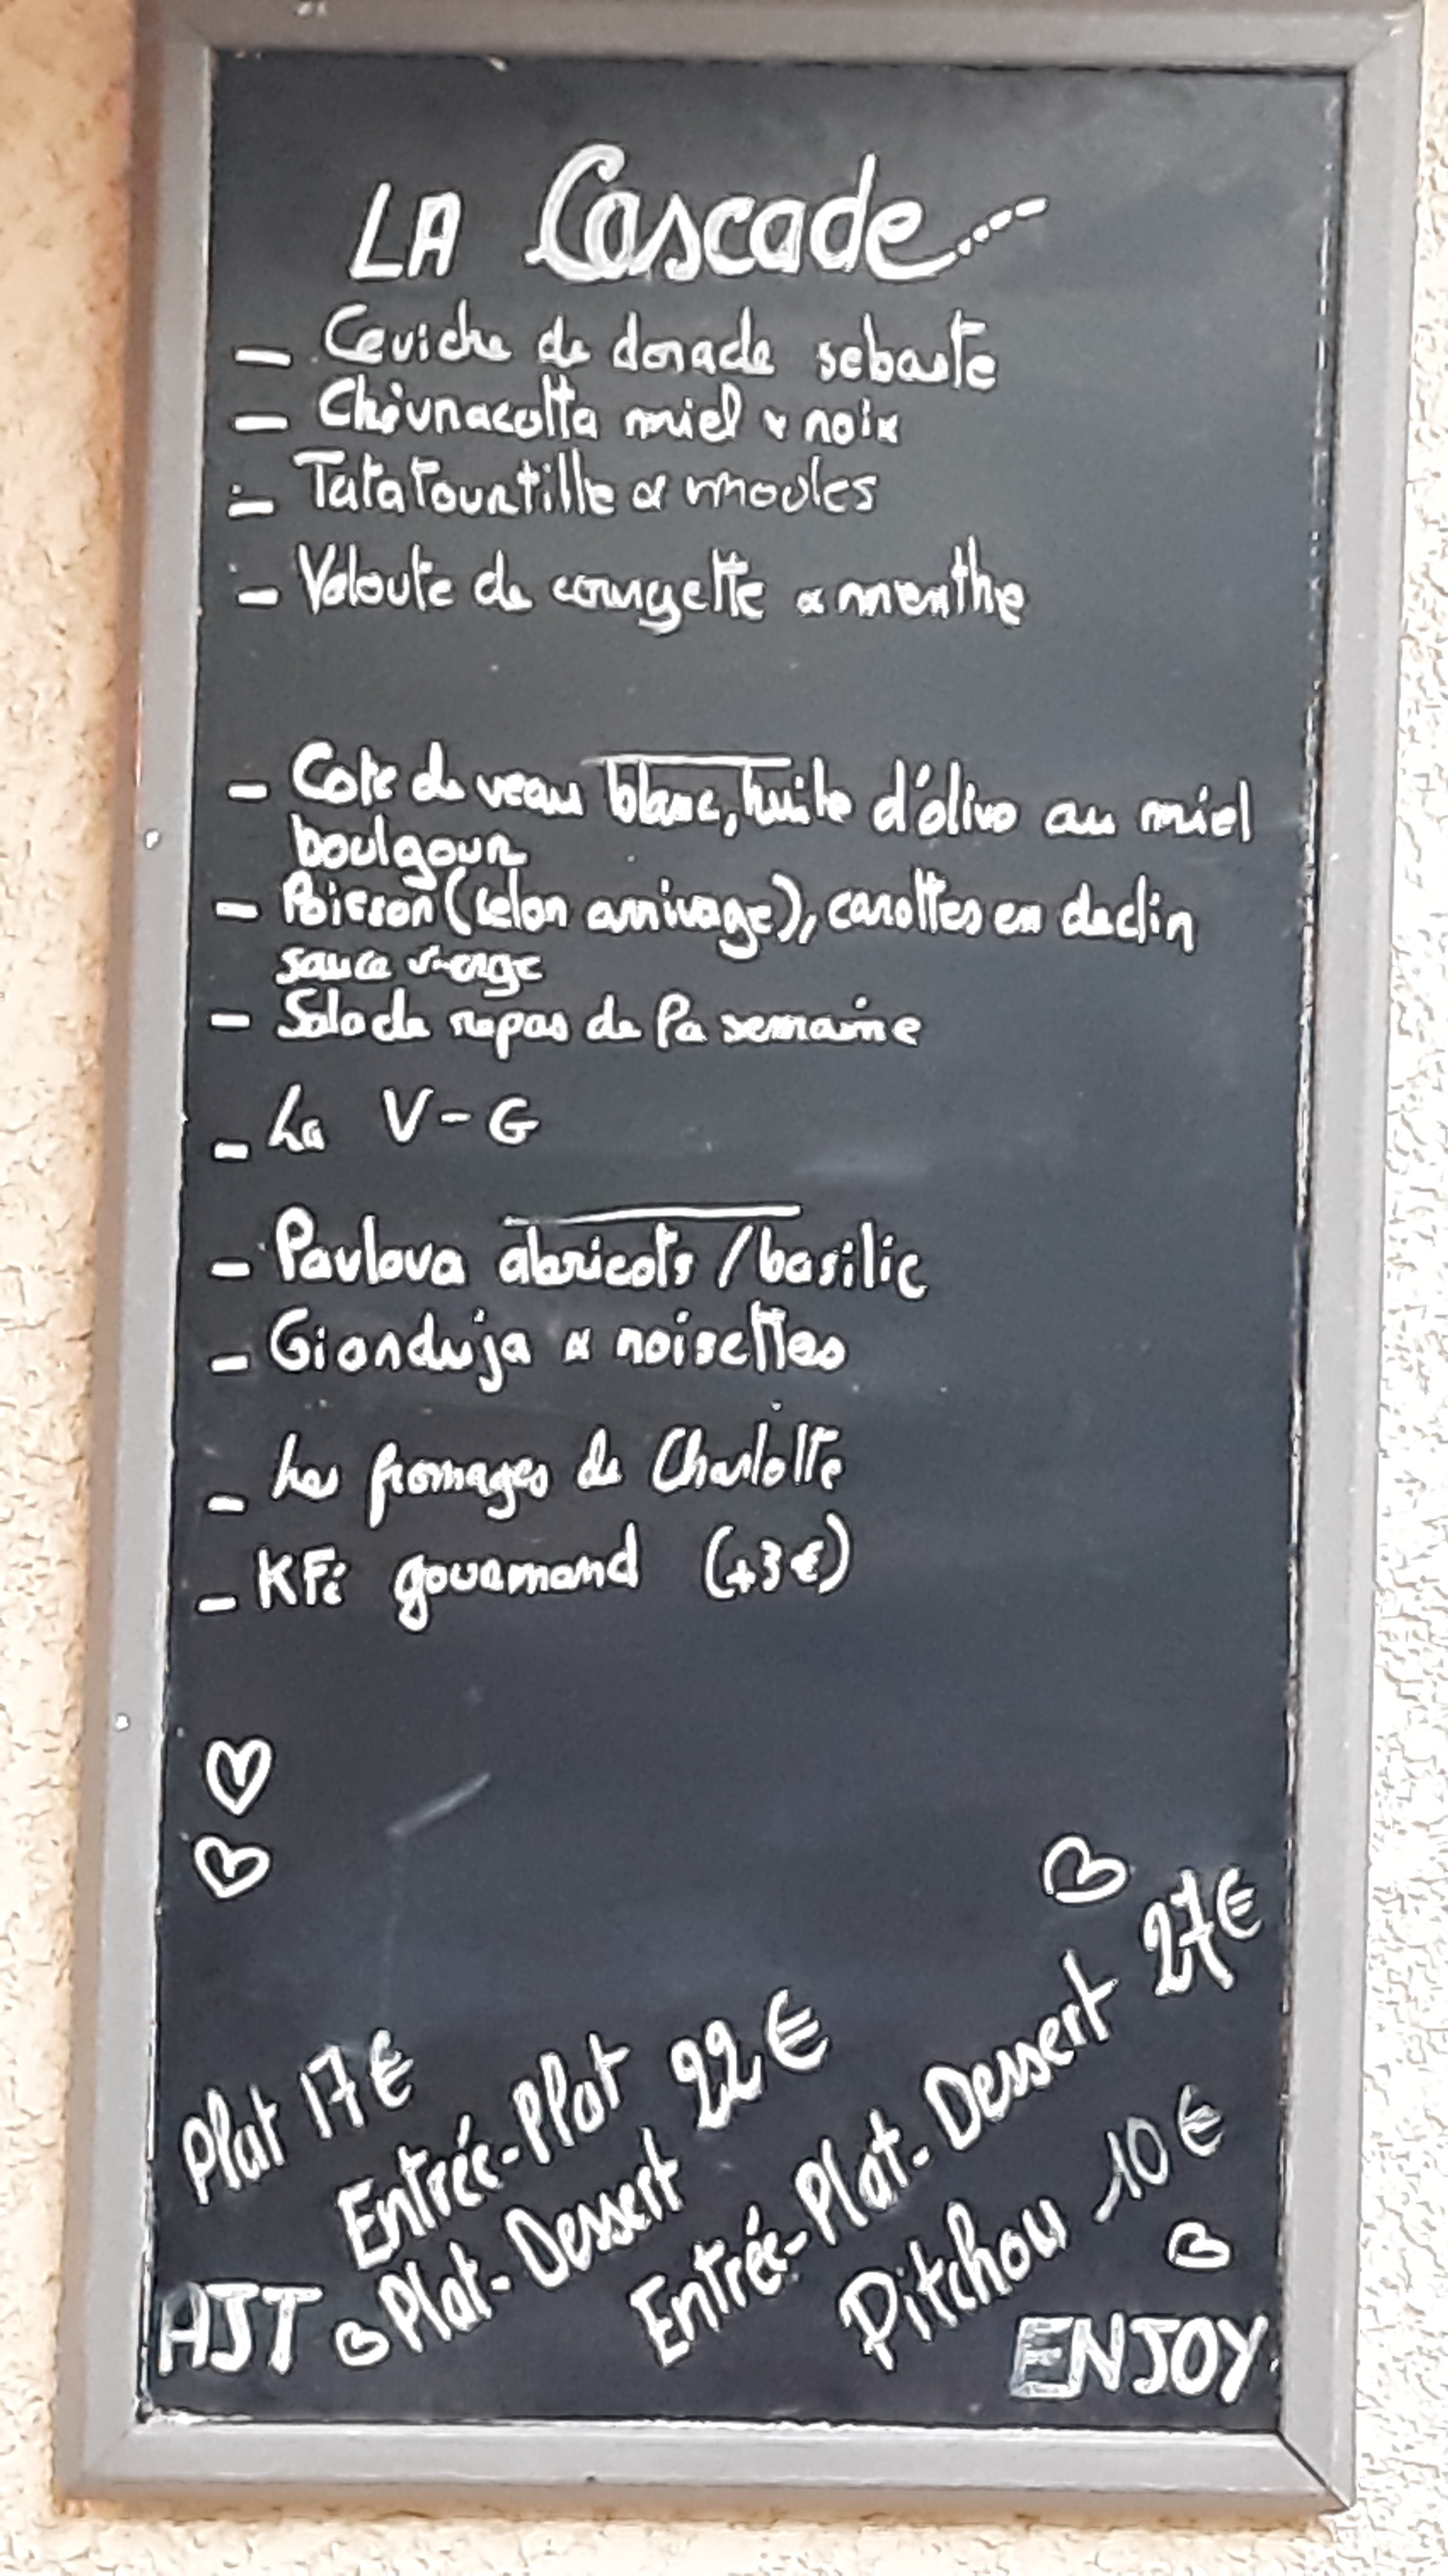 LA Cascade
- Ceviche de dorade sebaste
- Chèvnacotta miel & noix
- Tatatourtille & moules
- Veloute de courgette & menthe
- Cote de veau blanc, huile d'olive au miel
boulgour
- Poisson (selon arrivage), carottes en declin
sauce vierge
- Salade repas de la semaine
- La V-G
- Pavlova abricots / basilic
- Gianduja & noisettes
- Les fromages de Charlotte
- KFé gourmand (+3€)
Plat 17€
Entrée-Plat 22€
Plat-Dessert
Entrée-Plat-Dessert 27€
Pitchou 10€
AJT
ENJOY